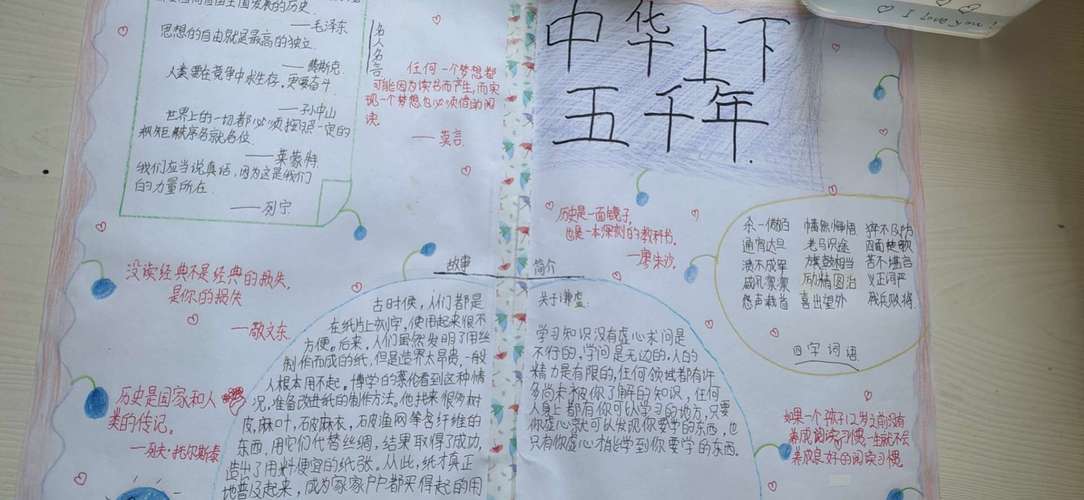 ——毛泽东
思想的自由就是最高的独立.
人类要在竞争中求生存,更要奋斗.
——孙中山
世界上的一切都必须按照一定的
规矩秩序各就各位
——莱蒙特
我们应当说真话,因为这是我们
的力量所在.
——列宁
名人名言
任何一个梦想都
可能因为读书而产生,而实
现一个梦想也必须借助阅
读.
——莫言.
没读经典不是经典的损失,
是你的损失
——敬文东.
历史是国家和人
类的传记.
——列夫·托尔斯泰
故事
古时候,人们都是
在纸片上刻字,使用起来很不
方便。后来,人们虽然发明了用丝
制作而成的纸,但是造价太昂贵,一般
人根本用不起。博学的蔡伦看到这种情
况,准备改进纸的制作方法。他找来很多树
皮,麻叶,石皮麻衣,石皮渔网等含纤维的
东西,用它们代替丝绸,结果取得了成功,
造出了用料便宜的纸张。从此,纸才真正
地普及起来,成为家家户户都买得起的用
I love you!
中华上下
五千年.
历史是一面镜子,
也是一本深刻的教科书.
简介
关于谦虚:
学习知识没有虚心求问是
不行的,学问是无边的,人的
精力是有限的,任何领域都有许
多尚未被你了解的知识,任何
人身上都有你可以学习的地方,只要
你虚心就可以发现你要学的东西,也
只有你虚心才能学到你要学的东西.
杀一儆百 幡然悔悟
通宵达旦 老马识途 四面楚歌
溃不成军 旗鼓相当 苦不堪言
威风凛凛 励精图治 义正词严
怨声载道 喜出望外 残兵败将
四字词语
如果一个孩子12岁之前没有
养成阅读习惯一生就不会
养成良好的阅读习惯